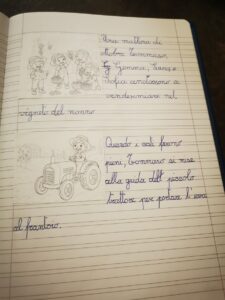 Una mattina di
ottobre Tommaso,
Gemma, Luca e
Sofia andarono a
vendemmiare nel
vigneto del nonno
Quando i cesti furono
pieni, Tommaso si mise
alla guida del piccolo
trattore per portare l'uva
al frantoio.